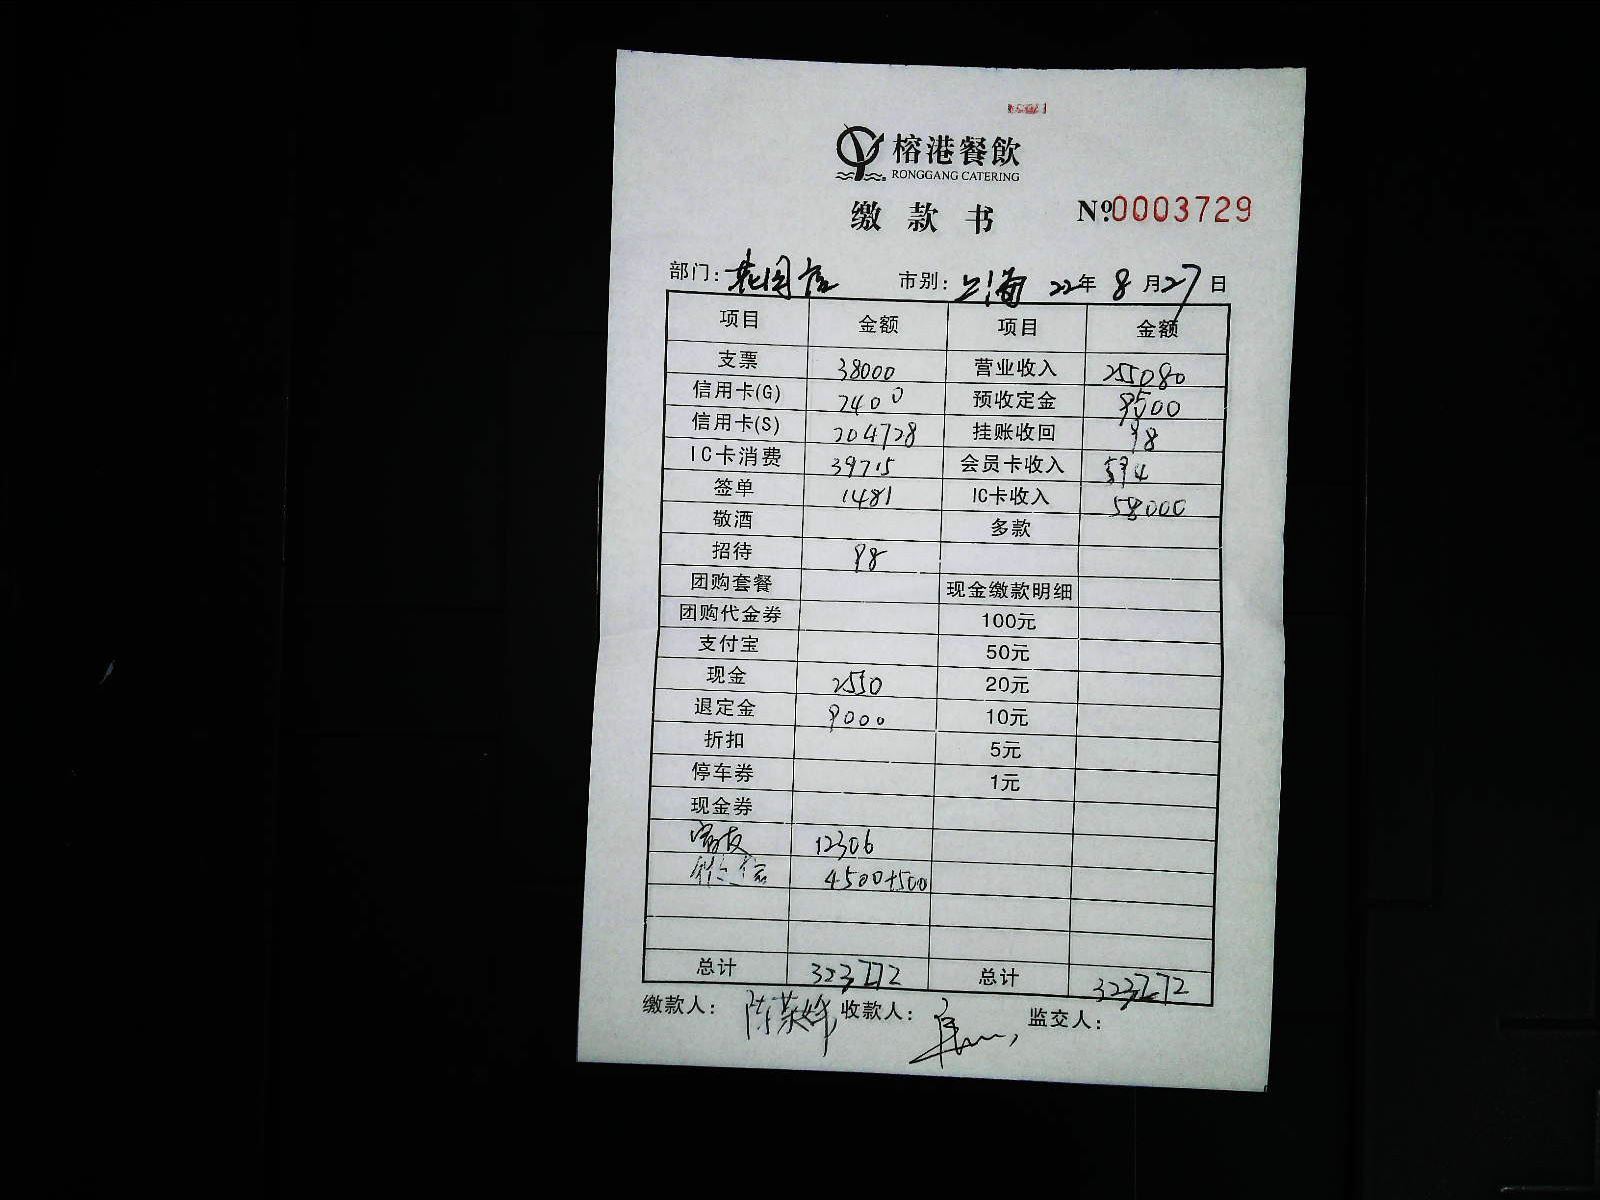 榕港餐飲
RONGGANG CATERING
缴款书 №0003729
部门: 花园店 市别: 上海 22年 8月27日
项目 金额 项目 金额
支票 38000 营业收入 255080
信用卡(G) 7400 预收定金 9500
信用卡(S) 204728 挂账收回 98
IC卡消费 39715 会员卡收入 594
签单 1481 IC卡收入 58000
敬酒 多款
招待 98
团购套餐 现金缴款明细
团购代金券 100元
支付宝 50元
现金 2550 20元
退定金 9000 10元
折扣 5元
停车券 1元
现金券
12306
微信 4500+500
总计 323272 总计 323272
缴款人: 陈荣 收款人: 监交人: